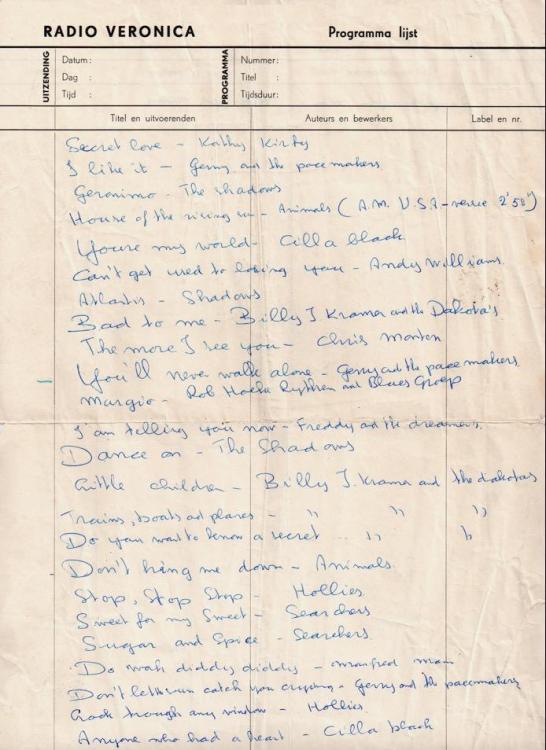 RADIO VERONICA Programma lijst
UITZENDING Datum: PROGRAMMA Nummer:
Dag : Titel :
Tijd : Tijdsduur:
Titel en uitvoerenden Auteurs en bewerkers Label en nr.
Secret love - Kathy Kirby
I like it - Gerry and the pacemakers
Geronimo - The shadows
House of the rising sun - Animals (A.M. U.S.A - versie 2'58")
Youre my world - Cilla black
Can't get used to losing you - Andy Williams
Atlantis - Shadows
Bad to me - Billy J Kramer and the Dakota's
The more I see you - Chris Monten
You'll never walk alone - Gerry and the pacemakers
Margio - Rob Hoeke Rythem and Blues Groep
I am telling you now - Freddy and the dreamers
Dance on - The Shadows
Little children - Billy J. Kramer and the dakotas
Trains, boats and planes - " " "
Do you want to know a secret .. " "
Don't bring me down - Animals
Stop, Stop Stop - Hollies
Sweet for my Sweet - Searchers
Sugar and Spice - Searchers
Do wah diddy diddy - manfred man
Don't let the sun catch you crying - Gerry and the pacemakers
Look trough any window - Hollies
Anyone who had a heart - Cilla black